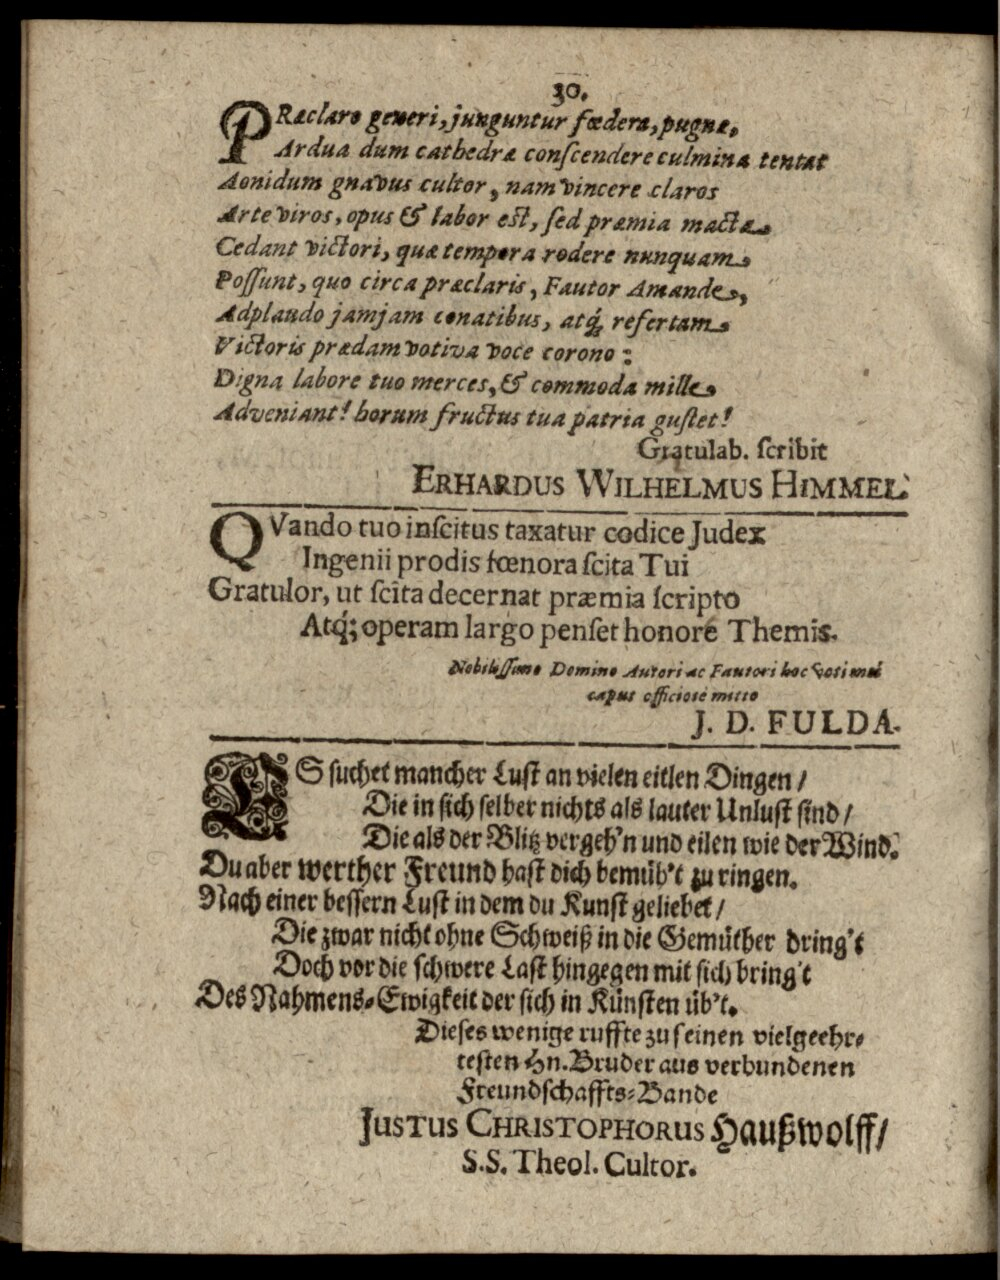 30.
PRæclaro generi, junguntur fœdera, pugnæ,
Ardua dum cathedræ conſcendere culmina tentat
Aonidum gnavus cultor, nam vincere claros
Arte viros, opus & labor est, ſed præmia mactæ
Cedant victori, quæ tempora rodere nunquam
Poſſunt, quo circa præclaris, Fautor Amande,
Adplaudo jamjam conatibus, atq́; refertam
Victoris prædam votiva voce corono:
Digna labore tuo merces, & commoda mille
Adveniant! horum fructus tua patria guſtet!
Gratulab. ſcribit
ERHARDUS WILHELMUS HIMMEL.
QVando tuo inſcitus taxatur codice Judex
Ingenii prodis fœnora ſcita Tui
Gratulor, ut ſcita decernat præmia ſcripto
Atq́; operam largo penſet honore Themis.
Nobiliſſimo Domino Autori ac Fautori hoc voti mei
caput officiose mitto
J. D. FULDA.
ES ſuchet mancher Luſt an vielen eitlen Dingen /
Die in ſich ſelber nichts als lauter Unluſt ſind /
Die als der Blitz vergeh'n und eilen wie der Wind.
Du aber werther Freund haſt dich bemüh't zu ringen.
Nach einer beſſern Luſt in dem du Kunſt geliebet /
Die zwar nicht ohne Schweiß in die Gemüther dring't
Doch vor die ſchwere Laſt hingegen mit ſich bring't
Des Nahmens-Ewigkeit der ſich in Künſten üb't.
Dieſes wenige ruffte zu ſeinen vielgeehr-
teſten Hn. Bruder aus verbundenen
Freundſchaffts-Bande
JUSTUS CHRISTOPHORUS Haußwolff /
S.S. Theol. Cultor.